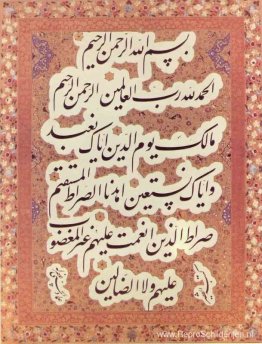 بسم الله الرحمن الرحیم
الحمد لله رب العالمین الرحمن الرحیم
مالک یوم الدین ایاک نعبد
و ایاک نستعین اهدنا الصراط المستقیم
صراط الذین انعمت علیهم غیر المغضوب
علیهم ولا الضالین
www.ReproSchilderijen.nl